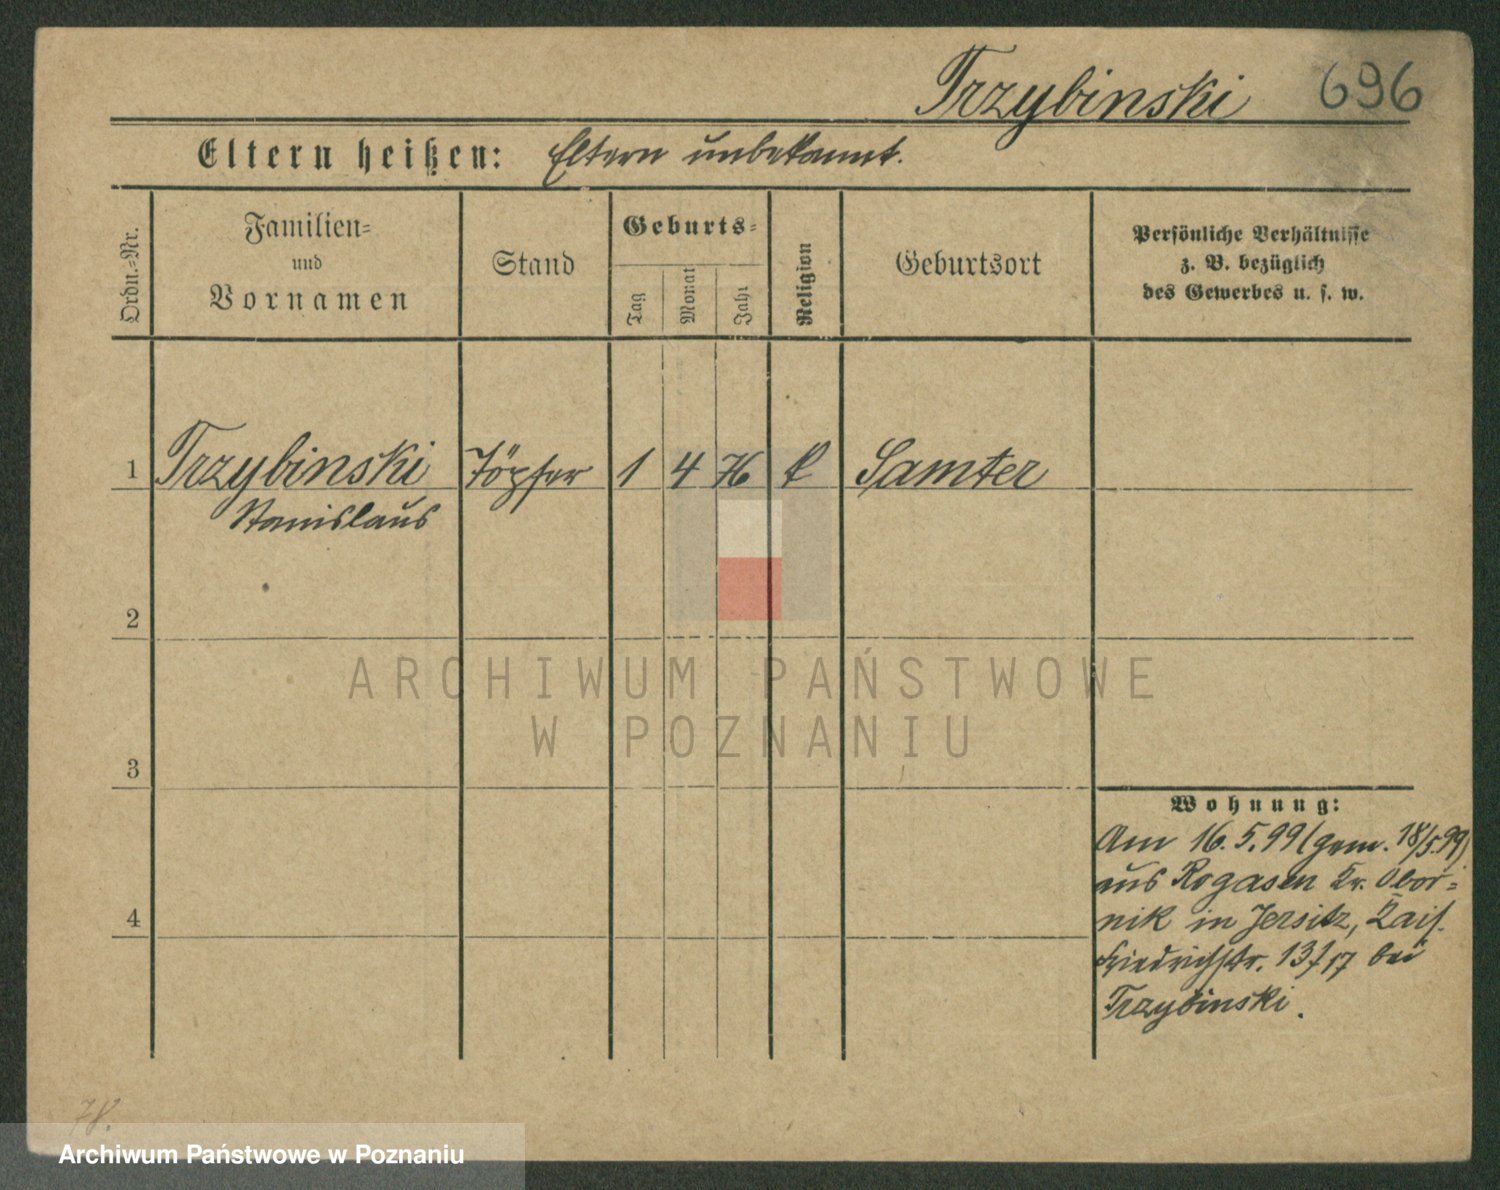 Trzybinski 696
Eltern heißen: Eltern unbekannt.
Ordn.-Nr.
Familien-
und
Vornamen
Stand
Geburts-
Tag
Monat
Jahr
Religion
Geburtsort
Persönliche Verhältnisse
z. B. bezüglich
des Gewerbes u. s. w.
1 Trzybinski Töpfer 1 4 76 k Samter
Stanislaus
2
ARCHIWUM PAŃSTWOWE
W POZNANIU
3
Wohnung:
Am 16.5.99 (gem. 18/5.99)
aus Rogasen Kr. Obor-
nik in Jersitz, Kais.
4
Friedrichstr. 13/17 bei
Trzybinski.
Archiwum Państwowe w Poznaniu